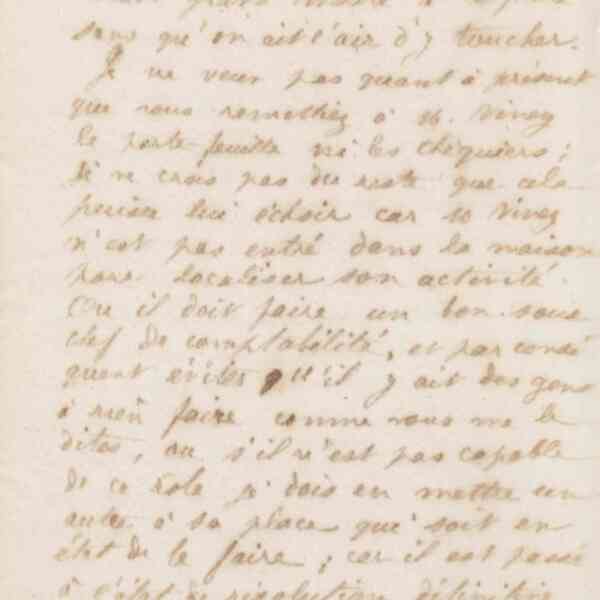 sans qu'on ait l'air d'y toucher.
Je ne veux pas quant à présent
que vous remettiez à M. Viney
le porte-feuille ni les chéquiers ;
Je ne crois pas du reste que cela
puisse lui échoir car M Viney
n'est pas entré dans la maison
pour localiser son activité.
Ou il doit faire un bon sous
chef de comptabilité, et par consé
quent éviter qu'il y ait des gens
à rien faire comme vous me le
dites, ou s'il n'est pas capable
de ce rôle je dois en mettre un
autre à sa place qui soit en
état de le faire ; car il est passé
à l'état de résolution définitive